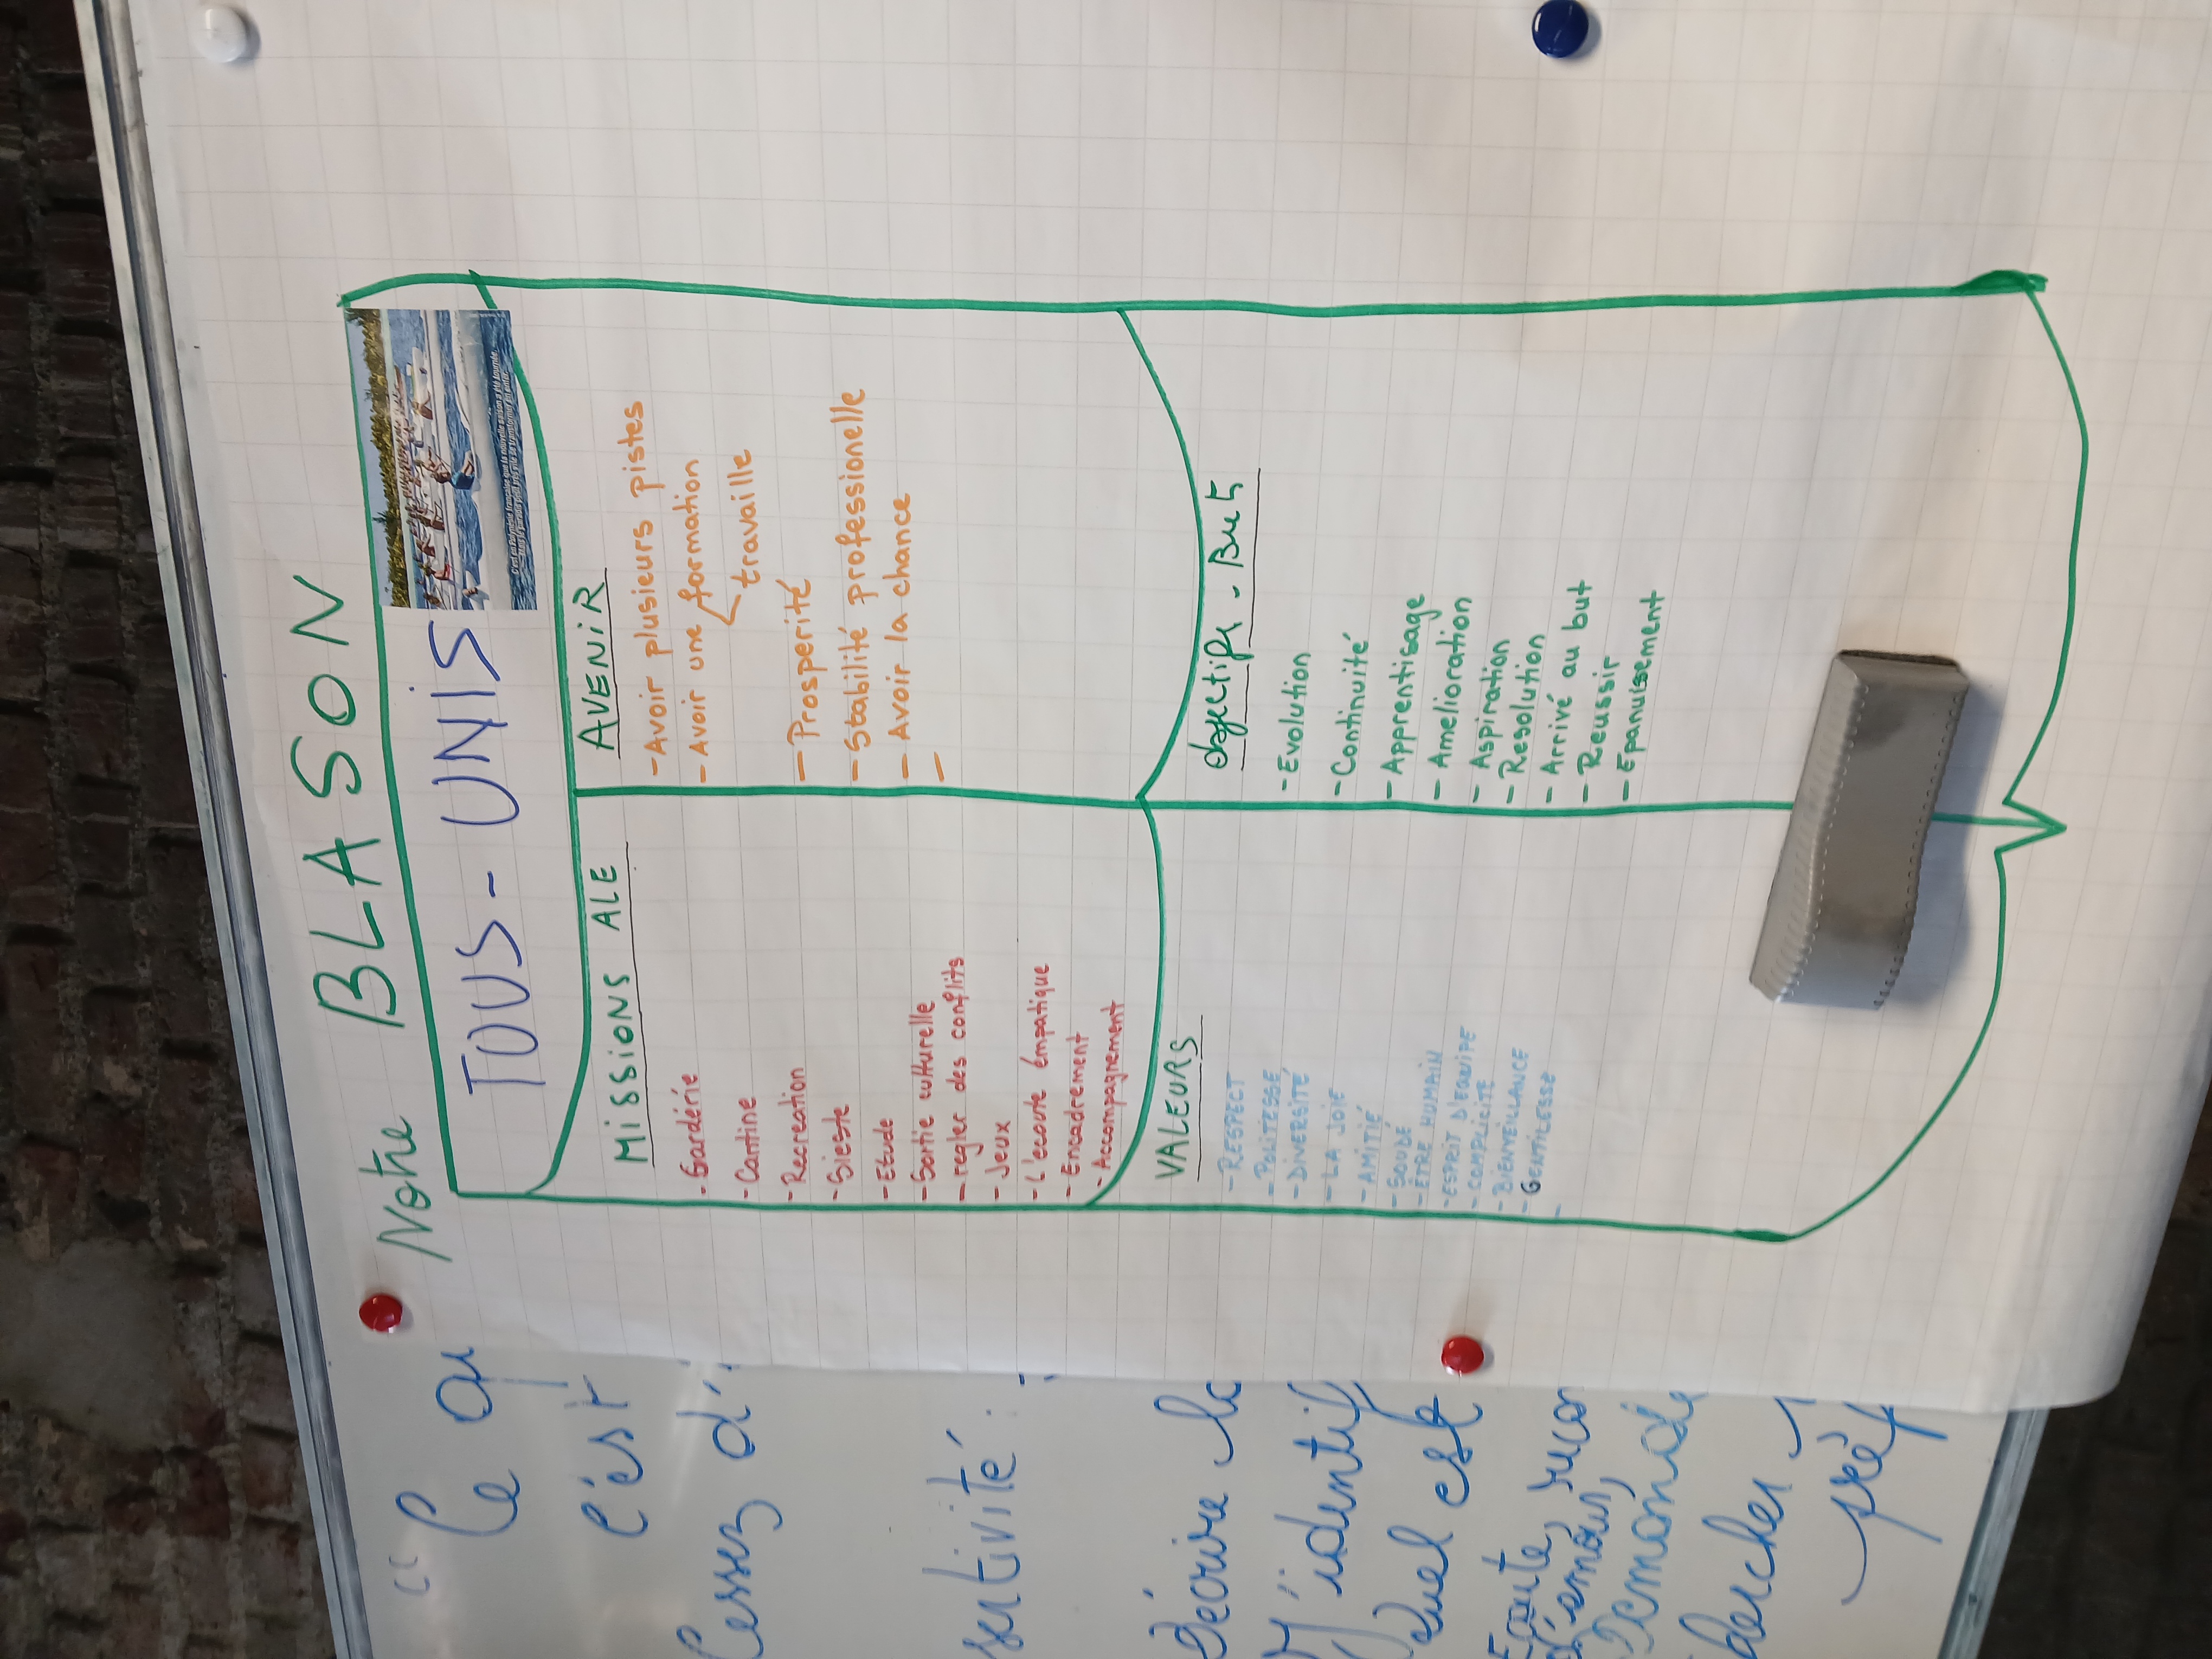 Notre BLASON
TOUS - UNIS
C'est en Polynésie française que la nouvelle saison a été tournée,
MISSIONS ALE
- Gardérie
- Cantine
- Recreation
- Sieste
- Etude
- Sortie culturelle
- regler des conflits
- Jeux
- L'ecoute émpatique
- Encadrement
- Accompagnement
AVENIR
- Avoir plusieurs pistes
- Avoir une formation
travaille
- Prosperité
- Stabilité professionelle
- Avoir la chance
-
VALEURS
- RESPECT
- POLITESSE
- DIVERSITÉ
- LA JOIE
- AMITIÉ
- SOUDÉ
- ÊTRE HUMAIN
- ESPRIT D'EQUIPE
- COMPLICITÉ
- BIENVEILLANCE
- GENTILESSE
-
Objectifs - But
- Evolution
- Continuité
- Apprentisage
- Amelioration
- Aspiration
- Resolution
- Arrivé au but
- Reussir
- Epanuissement
" Ce qu
c'est
Cessez d'
sertivité :
Décrire la
M'identif
Quel est